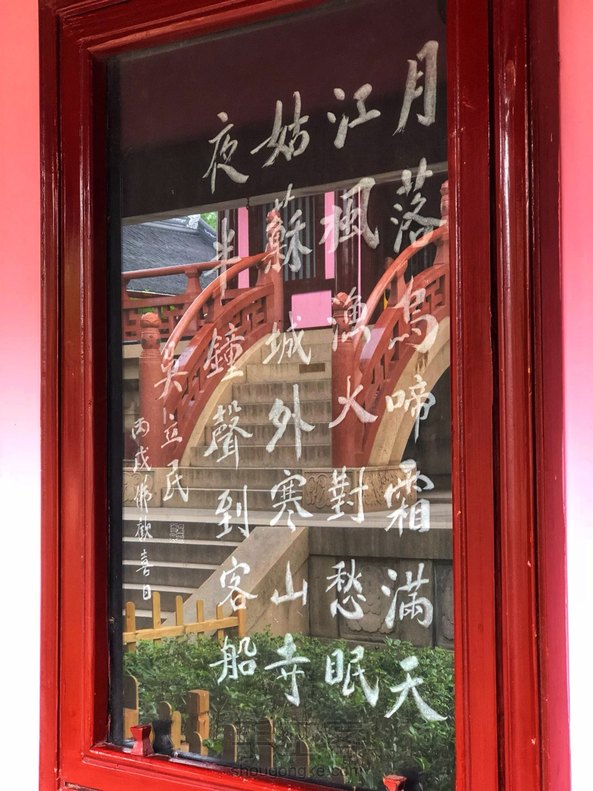 月落烏啼霜滿天
江楓漁火對愁眠
姑蘇城外寒山寺
夜半鐘聲到客船
吳立民
丙戌佛歡喜日